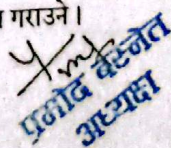 गराउने।
प्रमोद बस्नेत
अध्यक्ष